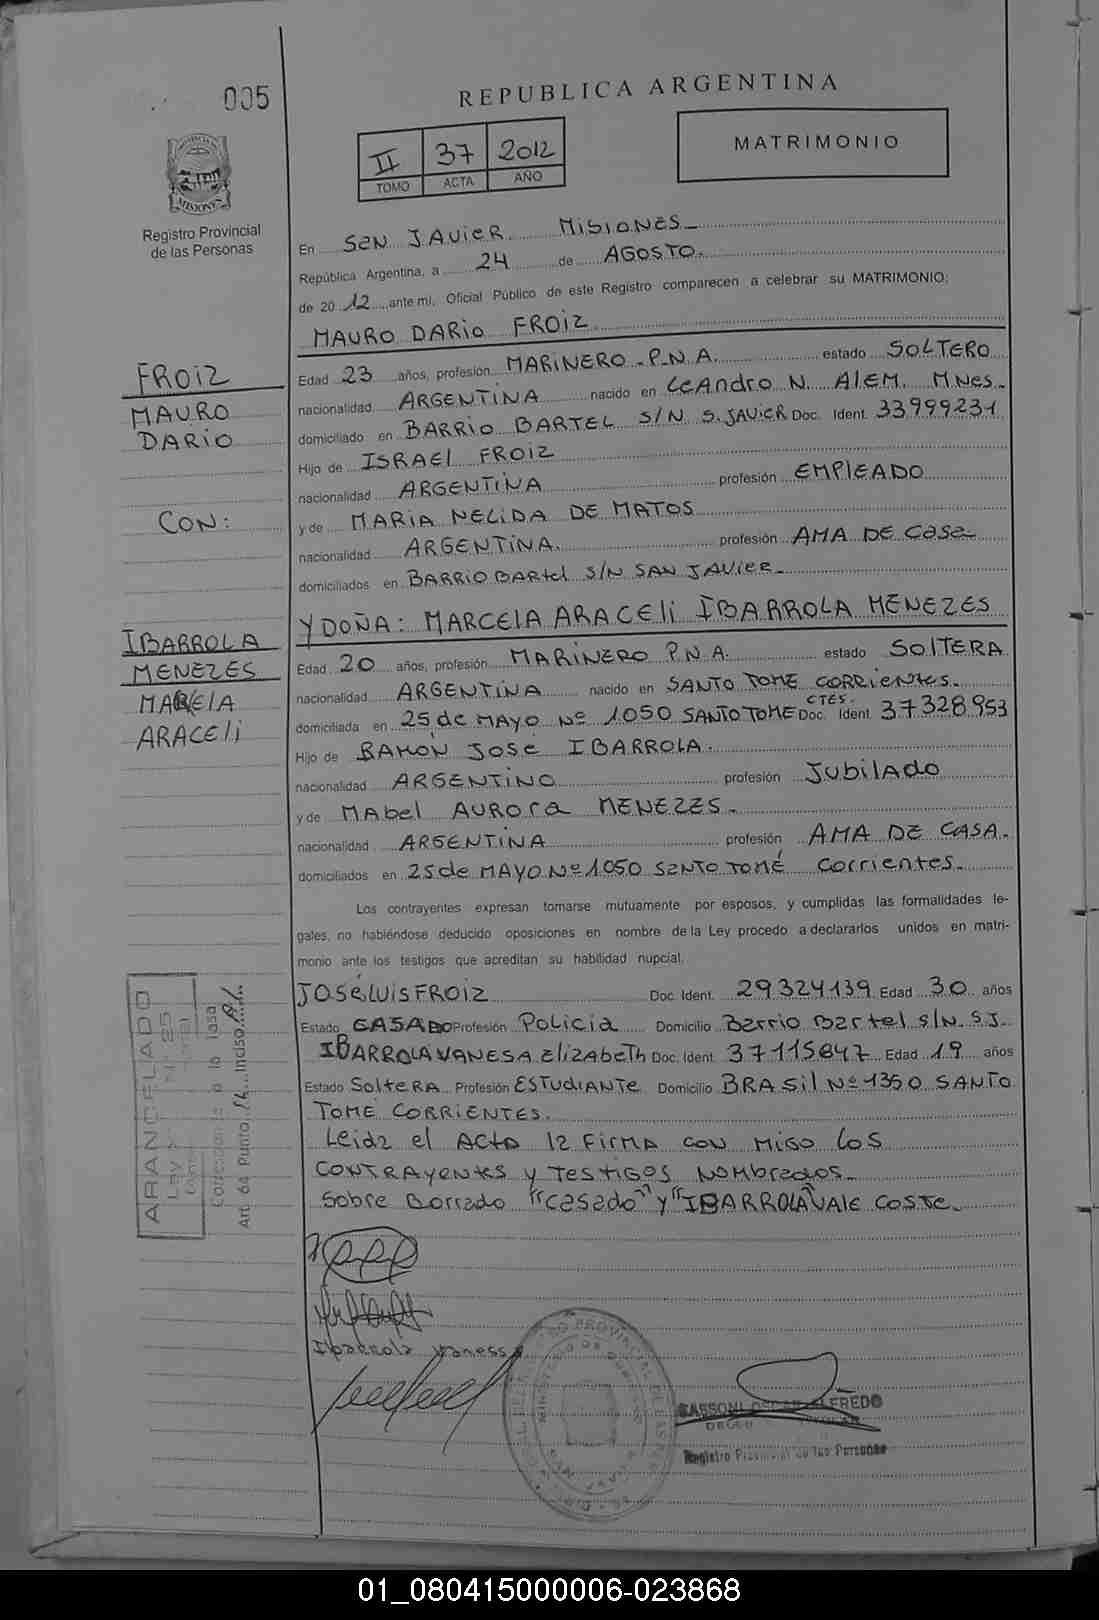 005
REPUBLICA ARGENTINA
II 37 2012
TOMO ACTA AÑO
MATRIMONIO
MISIONES
Registro Provincial
de las Personas
En SAN JAVIER MISIONES
República Argentina, a 24 de AGOSTO.
de 2012 ante mi, Oficial Público de este Registro comparecen a celebrar su MATRIMONIO;
MAURO DARIO FROIZ
FROIZ
MAURO
DARIO
CON:
IBARROLA
MENEZES
MARCELA
ARACELI
Edad 23 años, profesión MARINERO P.N.A. estado SOLTERO
nacionalidad ARGENTINA nacido en LEANDRO N. ALEM. MNES.
domiciliado en BARRIO BARTEL S/N S. JAVIER Doc. Ident. 33999231
Hijo de ISRAEL FROIZ
nacionalidad ARGENTINA profesión EMPLEADO
y de MARIA NELIDA DE MATOS
nacionalidad ARGENTINA. profesión AMA DE CASA
domiciliados en BARRIO BARTEL S/N SAN JAVIER
Y DOÑA: MARCELA ARACELI IBARROLA MENEZES
Edad 20 años, profesión MARINERO P.N.A. estado SOLTERA
nacionalidad ARGENTINA nacido en SANTO TOME CORRIENTES.
domiciliada en 25 de MAYO Nº 1050 SANTO TOME CTES. Doc. Ident. 37328953
Hijo de RAMÓN JOSE IBARROLA.
nacionalidad ARGENTINO profesión JUBILADO
y de MABEL AURORA MENEZES.
nacionalidad ARGENTINA profesión AMA DE CASA.
domiciliados en 25 de MAYO Nº 1050 SANTO TOMÉ Corrientes.
Los contrayentes expresan tomarse mutuamente por esposos, y cumplidas las formalidades le-
gales, no habiéndose deducido oposiciones en nombre de la Ley procedo a declararlos unidos en matri-
monio ante los testigos que acreditan su habilidad nupcial.
JOSÉ LUIS FROIZ Doc. Ident. 29324139 Edad 30 años
Estado CASADO Profesión Policia Domicilio Barrio Bartel S/N. S.J.
IBARROLA VANESA ELIZABETH Doc. Ident. 37115847 Edad 19 años
Estado SOLTERA Profesión ESTUDIANTE Domicilio BRASIL Nº 1350 SANTO
TOMÉ CORRIENTES.
Leida el ACTA la FIRMA CON MIGO LOS
CONTRAYENTES Y TESTIGOS NOMBRADOS.
Sobre Borrado "casado" y "IBARROLA" VALE CONSTE.
ARANCELIADO
Ley
Corresponde a la tasa
Art. 64 Punto Inciso
Ibarrola Vanessa
SASSONI OSCAR ALFREDO
Registro Provincial de las Personas
01_080415000006-023868